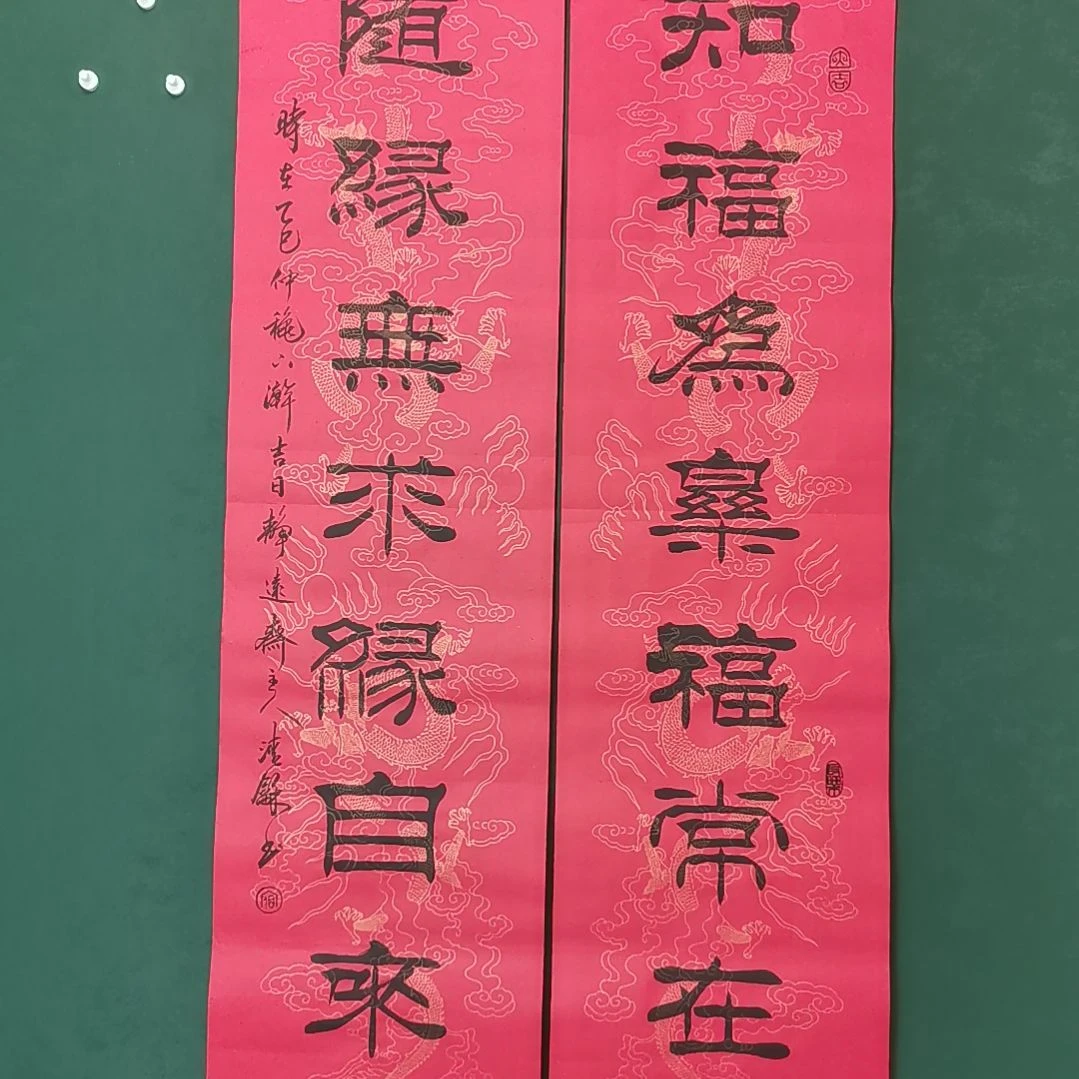 知福為樂福常在
隨緣無求緣自來
時在乙巳仲龝下澣吉日靜遠齋主人清书